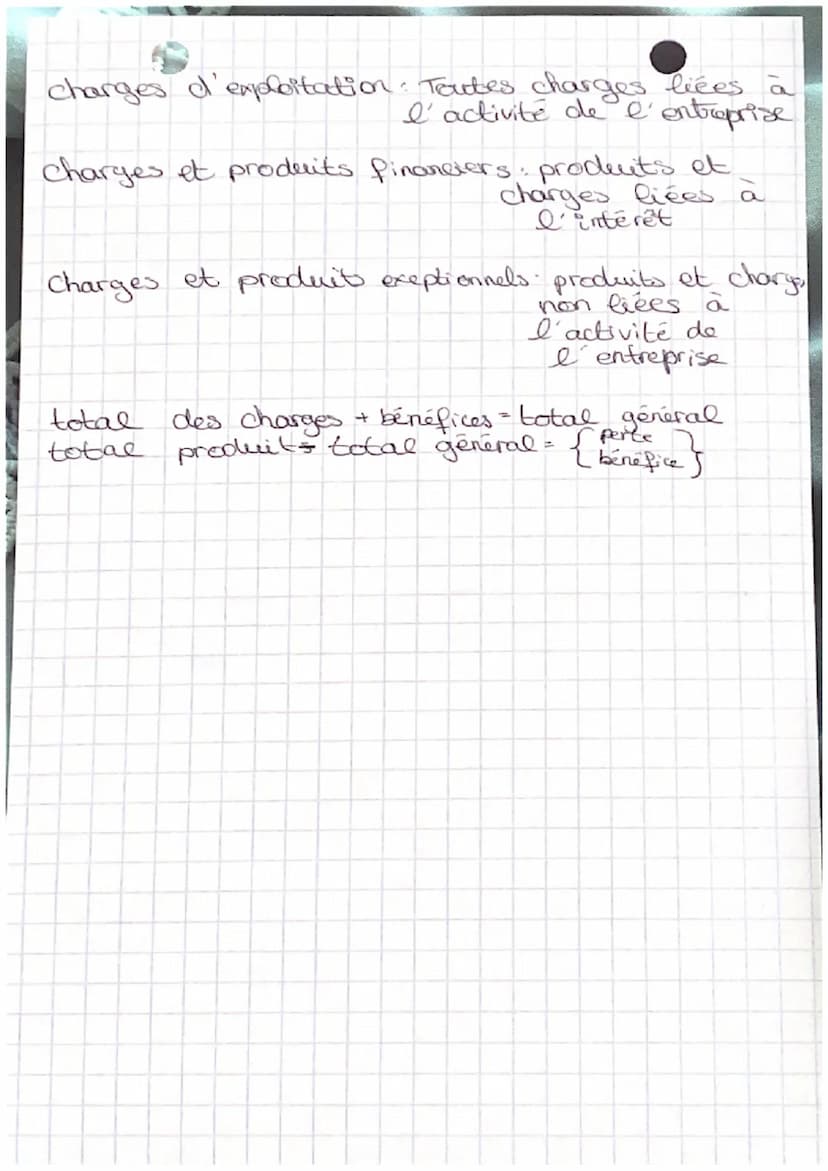 charges d'exploitation : Toutes charges liées à
l'activité de l'entreprise
Charges et produits financiers : produits et
charges liées à
l'intérêt
Charges et produit exeptionnels : produits et charges
non liées à
l'activité de
l'entreprise
total des charges + bénéfices = total général
total produit = total général = { perte
bénéfice }